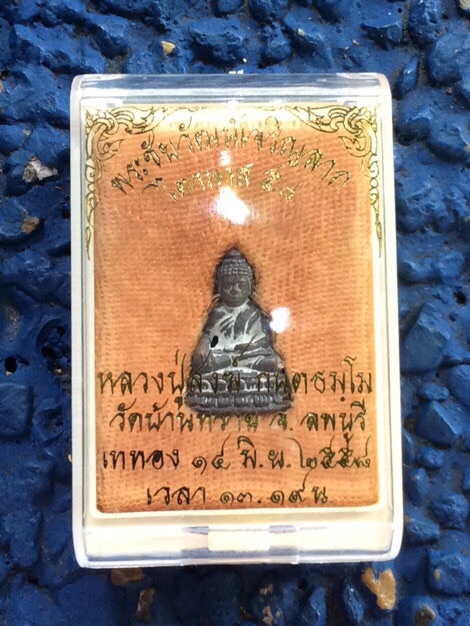 พระชัยวัฒน์เจริญลาภ
ไตรมาส ๕๘
หลวงปู่
วัด จ. ลพบุรี
เททอง ๑๔ มิ.ย. ๒๕๕๘
เวลา ๑๓.๑๙ น